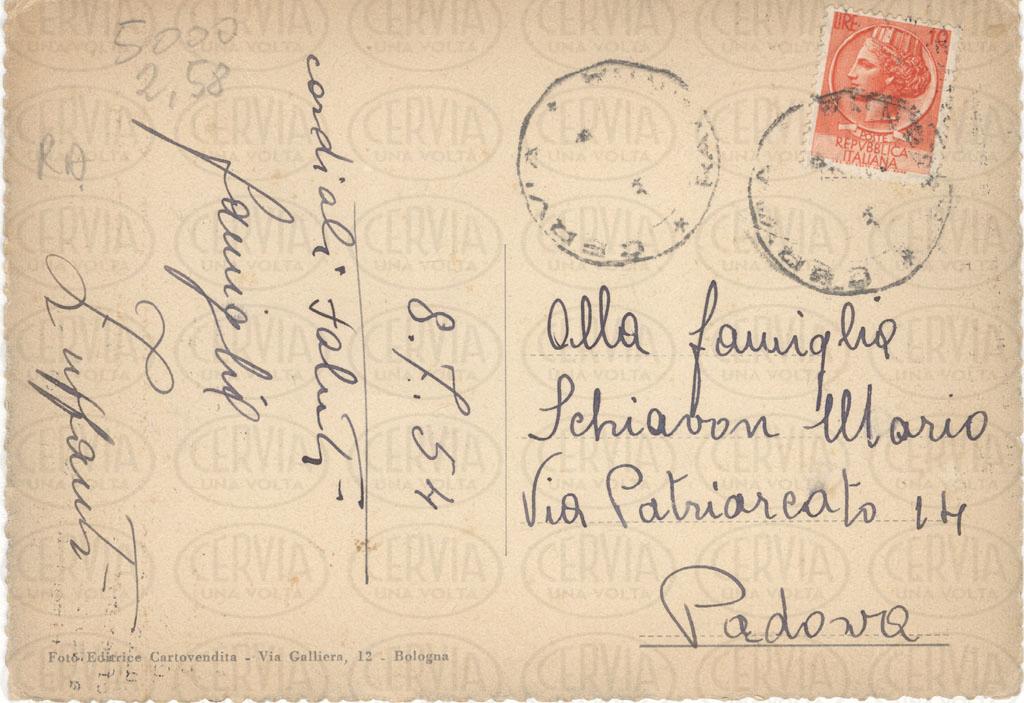 5000
2,58
R.D.
cordiali saluti
8.7.54
famiglia
LIRE 10
POSTE
REPVBBLICA
ITALIANA
CERVIA
CERVIA
Alla famiglia
Schiavon Mario
Via Patriarcato 14
Padova
Foto Editrice Cartovendita - Via Galliera, 12 - Bologna
CERVIA
UNA VOLTA